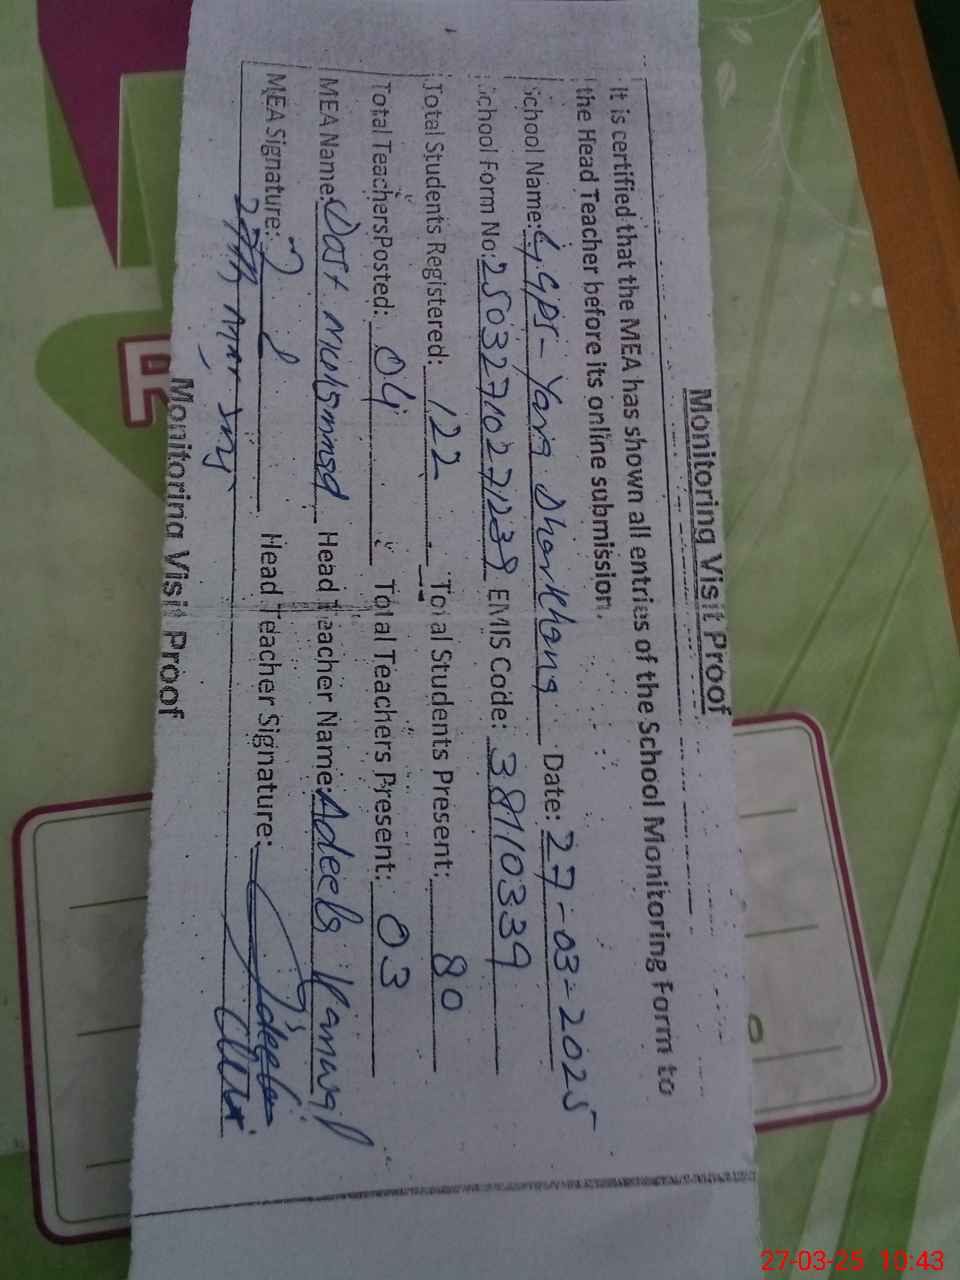 Monitoring Visit Proof
It is certified that the MEA has shown all entries of the School Monitoring Form to
the Head Teacher before its online submission.
School Name: GGPS- Yara Dharkhana Date: 27-03-2025
School Form No: EMIS Code: 38110339
Total Students Registered: 122 Total Students Present: 80
Total Teachers Posted: 04 Total Teachers Present: 03
MEA Name: Dost Muhammad Head Teacher Name: Adeela Kanwal
MEA Signature: Head Teacher Signature: Adeela
Monitoring Visit Proof
27-03-25 10:43